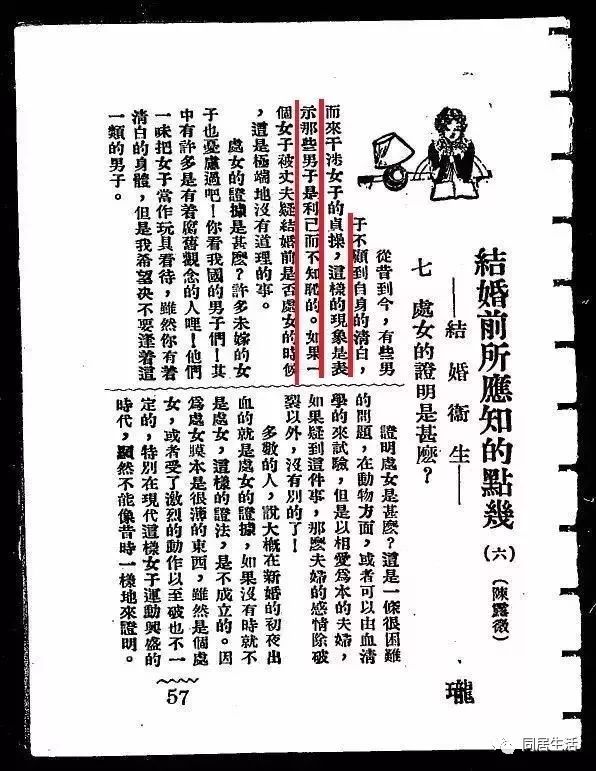 結婚前所應知的點幾(六)〔陳露薇〕
——結婚衞生——
七 處女的證明是甚麽?
從昔到今,有些男
于不顧到自身的清白,
而來干涉女子的貞操,這樣的現象是表
示那些男子是利己而不知恥的。如果一
個女子被丈夫疑結婚前是否處女的時候
,這是極端地沒有道理的事。
處女的證據是甚麽?許多未嫁的女
子也憂慮過吧!你看我國的男子們!其
中有許多是有着腐舊觀念的人哩!他們
一味把女子當作玩具看待,雖然你有着
清白的身體,但是我希望決不要逢着這
一類的男子。
證明處女是甚麽?這是一條很困難
的問題,在動物方面,或者可以由血清
學的來試驗,但是以相愛爲本的夫婦,
如果疑到這件事,那麽夫婦的感情除破
裂以外,沒有別的了!
多數的人,說大概在新婚的初夜出
血的就是處女的證據,如果沒有時就不
是處女,這樣的證法,是不成立的。因
爲處女膜本是很薄的東西,雖然是個處
女,或者受了激烈的動作以至破也不一
定的,特別在現代這樣女子運動興盛的
時代,顯然不能像昔時一樣地來證明。
瓏
57
同居生活